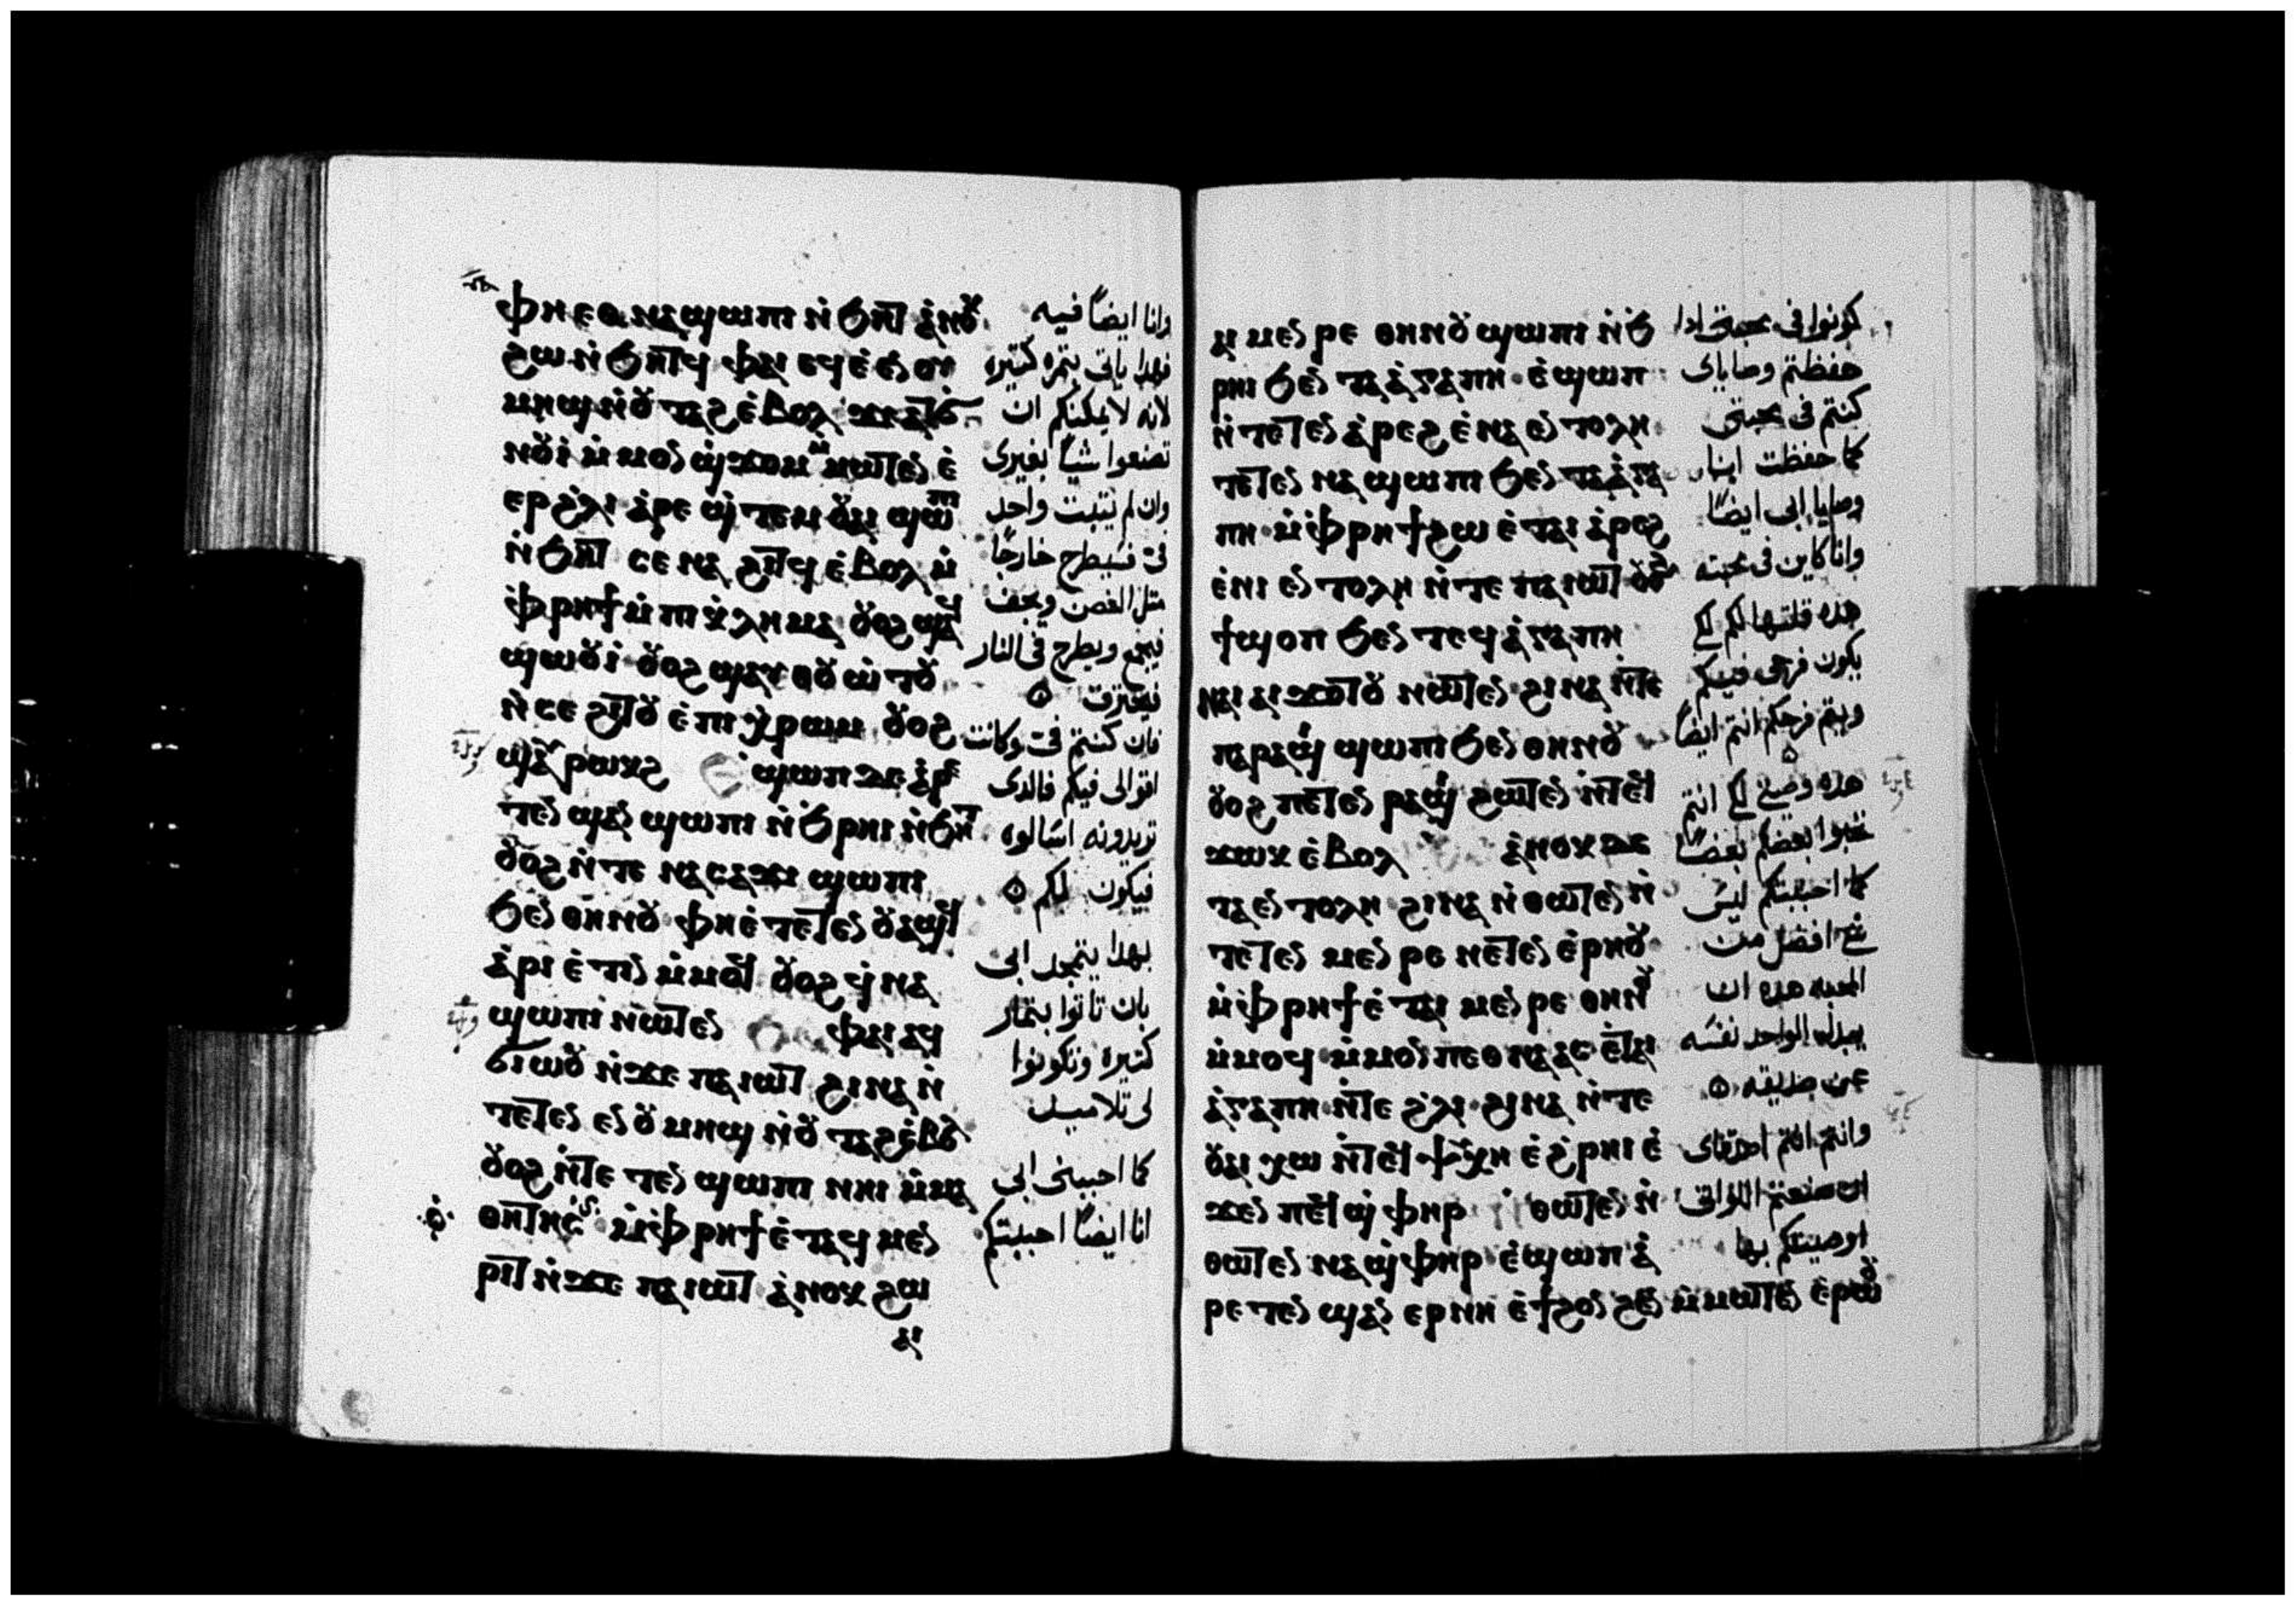 ⲫⲏⲉⲑⲛⲁϣⲱⲡⲓ ⲛ̀ϧⲏⲧ ⲁ̀ⲛⲟⲕ
ϩⲱ ⲛ̀ϧⲏⲧϥ ⲫⲁⲓ ⲉϥⲉ̀ⲉⲛ ⲟⲩ
ⲙⲏϣ ⲛ̀ⲟⲩⲧⲁϩ ⲉ̀ⲃⲟⲗ ϫⲉ ⲁⲧϭ
ⲛⲟⲩⲓ̀ ⲙ̀ⲙⲟⲛ ϣ̀ϫⲟⲙ ⲙ̀ⲙⲱⲧⲉⲛ ⲉ̀
ⲉⲣ ϩ̀ⲗⲓ ⲁ̀ⲣⲉϣ̀ⲧⲉⲙ ⲟⲩⲁⲓ ϣⲱⲡⲓ
ⲛ̀ϧⲏⲧ ⲥⲉⲛⲁϩⲓⲧϥ ⲉ̀ⲃⲟⲗ ⲙ̀
ⲫ̀ⲣⲏϯ ⲙ̀ⲡⲓⲕ̀ⲗⲏⲙⲁ ⲟⲩⲟϩ ϣⲁϥ
ϣⲱⲟⲩⲓ̀ ⲟⲩⲟϩ ϣⲁⲩⲑⲟⲩⲱ̀ⲧⲟⲩ
ⲛ̀ⲥⲉϩⲓⲧⲟⲩ ⲉ̀ⲡⲓⲭ̀ⲣⲱⲙ ⲟⲩⲟϩ
ϣⲁⲩⲣⲱⲕϩ ϣⲱⲡ ⲇⲉ ⲁ̀ⲣⲉ
ⲧⲉⲛϣⲁⲛϣⲱⲡⲓ ⲛ̀ϧⲣⲏⲓ ⲛ̀ϧⲏⲧ
ⲟⲩⲟϩ ⲛ̀ⲧⲉ ⲛⲁⲥⲁϫⲓ ϣⲱⲡⲓ
ϧⲉⲛ ⲑⲏⲛⲟⲩ ⲫⲏⲉ̀ⲧⲉⲧⲉⲛⲟⲩⲁϣϥ
ⲁ̀ⲣⲓⲉ̀ⲧⲓⲛ ⲙ̀ⲙⲟϥ ⲟⲩⲟϩ ϥ̀ⲛⲁ
ϣⲱⲡⲓ ⲛⲱⲧⲉⲛ ⲫⲁⲓ ⲁϥ
ϭⲓⲱⲟⲩ ⲛ̀ϫⲉ ⲡⲁⲓⲱⲧ ϩⲓⲛⲁ ⲛ̀
ⲧⲉⲧⲉⲛⲉⲛ ⲟⲩⲙⲏϣ ⲛ̀ⲟⲩⲧⲁϩ ⲉ̀ⲃⲟⲗ
ⲟⲩⲟϩ ⲛ̀ⲧⲉⲧⲉⲛϣⲱⲡⲓ ⲛⲏⲓ ⲙ̀ⲙⲁ
ⲑⲏⲧⲏⲥ ⲙ̀ⲫ̀ⲣⲏϯ ⲉ̀ⲧⲁϥⲙⲉⲛ
ⲣⲓⲧ ⲛ̀ϫⲉ ⲡⲁⲓⲱⲧ ⲁ̀ⲛⲟⲕ ϩⲱ
ⲁⲓ
وانا ايضاً فيه
فهدا ياتى بتمره كتيره
لانه لا يمكنكم ان
تصنعوا شياً بغيرى
وان لم يتبت واحد
فى فسيطرح خارجاً
متل الغصن ويجف
فيجمع ويطرح فى النار
فيحترق
فان كنتم فى وكانت
اقوالى فيكم فالدى
تريدونه اسالوه
فيكون لكم
بهدا يتمجد ابى
بان تاتوا بتمار
كتيره وتكونوا
لى تلاميد
كما احببنى ابى
انا ايضاً احببتكم
ⲙⲉⲛⲣⲉ ⲑⲏⲛⲟⲩ ϣⲱⲡⲓ ⲛ̀ϧ
ⲣⲏⲓ ϧⲉⲛ ⲧⲁⲁ̀ⲅⲁⲡⲏ ⲉ̀ϣⲱⲡ
ⲛ̀ⲧⲉⲧⲉⲛⲁ̀ⲣⲉϩ ⲉ̀ⲛⲁⲉⲛⲧⲟⲗⲏ
ⲧⲉⲧⲉⲛⲛⲁϣⲱⲡⲓ ϧⲉⲛ ⲧⲁⲁ̀ⲅⲁ
ⲡⲏ ⲙ̀ⲫ̀ⲣⲏϯ ϩⲱ ⲉ̀ⲧⲁⲓⲁ̀ⲣⲉϩ
ⲉ̀ⲛⲓⲉⲛⲧⲟⲗⲏ ⲛ̀ⲧⲉ ⲡⲁⲓⲱⲧ ⲟⲩⲟϩ
ϯϣⲟⲡ ϧⲉⲛ ⲧⲉϥⲁ̀ⲅⲁⲡⲏ
ⲛⲁⲓ ⲁⲓϫⲟⲧⲟⲩ ⲛⲱⲧⲉⲛ ϩⲓⲛⲁ ⲛ̀ⲧⲉ
ⲡⲁⲣⲁϣⲓ ϣⲱⲡⲓ ϧⲉⲛ ⲑⲏⲛⲟⲩ
ⲟⲩⲟϩ ⲡⲉⲧⲉⲛⲣⲁϣⲓ ϩⲱⲧⲉⲛ ⲛ̀ⲧⲉϥ
ϫⲱⲕ ⲉ̀ⲃⲟⲗ ⲁ̀ⲛⲟⲕ ⲇⲉ
ⲧⲁⲉⲛⲧⲟⲗⲏ ϩⲓⲛⲁ ⲛ̀ⲑⲱⲧⲉⲛ ⲛ̀
ⲧⲉⲧⲉⲛⲙⲉⲛⲣⲉ ⲛⲉⲧⲉⲛⲉ̀ⲣⲏⲟⲩ
ⲙ̀ⲫ̀ⲣⲏϯ ⲉ̀ⲧⲁⲓⲙⲉⲛⲣⲉ ⲑⲏⲛⲟⲩ
ⲙ̀ⲙⲟϥ ⲙ̀ⲙⲟⲛ ⲡⲉⲑⲛⲁⲁⲥ ⲉ̀ⲧⲁⲓ
ⲁ̀ⲅⲁⲡⲏ ⲛ̀ⲧⲉ ϩ̀ⲗⲓ ϩⲓⲛⲁ ⲛ̀ⲧⲉ
ⲟⲩⲁⲓ ⲭⲱ ⲛ̀ⲧⲉϥⲯⲩⲭⲏ ⲉ̀ϩ̀ⲣⲏⲓ ⲉ̀
ϫⲉⲛ ⲡⲉϥϣ̀ⲫⲏⲣ ⲑⲱⲧⲉⲛ ⲛ̀
ⲑⲱⲧⲉⲛ ⲛⲁϣ̀ⲫⲏⲣ ⲉ̀ϣⲱⲡ ⲁ̀
ⲣⲉⲧⲉⲛϣⲁⲛⲉⲣ ⲛⲏ ⲉ̀ϯϩⲟⲛϩⲉⲛ ⲙ̀ⲙⲱⲧⲉⲛ ⲉ̀ⲣⲱⲟⲩ
كونوا فى محبتى ادا
حفظتم وصاياى
كنتم فى محبتى
كما حفظت انا
وصايا ابى ايضاً
وانا كاين فى محبته
هده قلتها لكم لكى
يكون فرحى فيكم
ويتم فرحكم انتم ايضاً
هده وصيتى لكى انتم
تحبوا بعضكم بعضاً
كما احببتكم ليس
شى افضل من
المحبه هده ان
يبدل الواحد نفسه
عن صديقه
وانتم انتم اصدقاى
ان صنعتم اللواتى
اوصيتكم بها